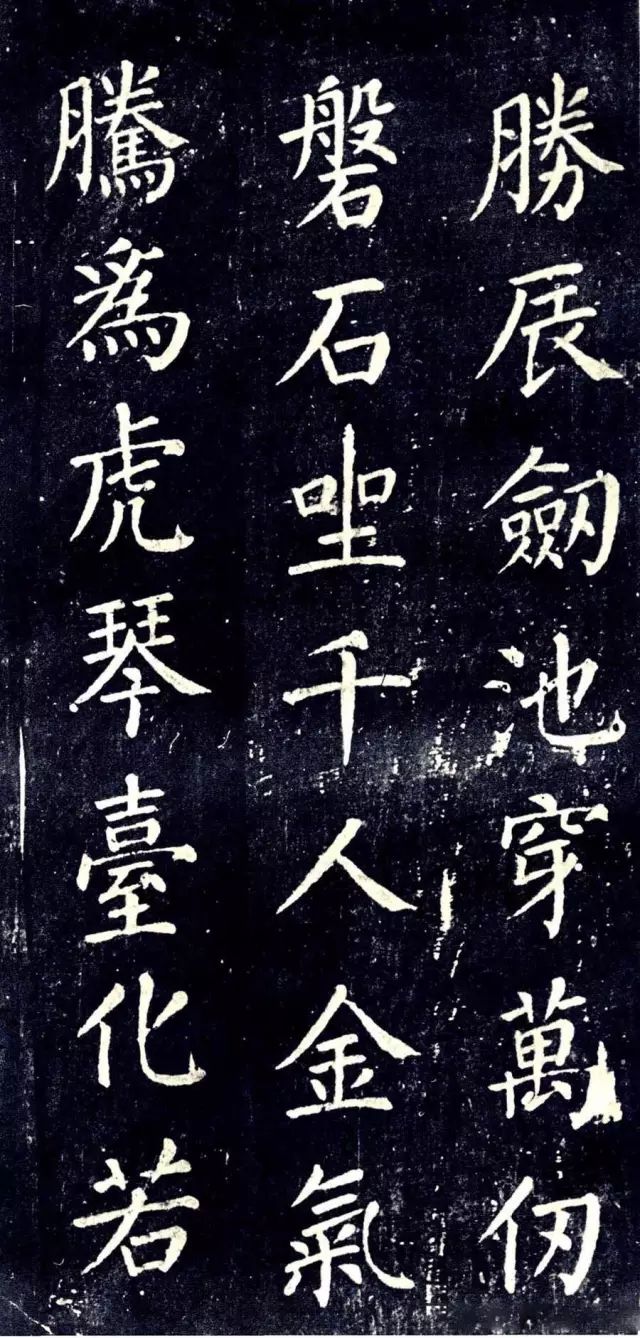 勝辰劒池穿萬仞
磐石坐千人金氣
騰為虎琴臺化若